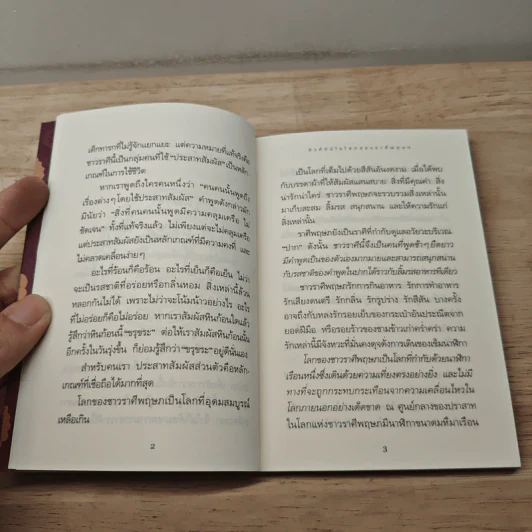 เด็กทารกที่ไม่รู้จักแยกแยะ แต่ความหมายที่แท้จริงคือ
ชาวราศีนี้เป็นกลุ่มคนที่ใช้ "ประสาทสัมผัส" เป็นหลัก
เกณฑ์ในการใช้ชีวิต
หากเราพูดถึงใครคนหนึ่งว่า "คนคนนั้นพูดถึง
เรื่องต่างๆ โดยใช้ประสาทสัมผัส" คำพูดดังกล่าวมัก
มีนัยว่า "สิ่งที่คนคนนั้นพูดมีความคลุมเครือ ไม่
ชัดเจน" ทั้งที่แท้จริงแล้ว ไม่เพียงแต่จะไม่คลุมเครือ
แต่ประสาทสัมผัสยังเป็นหลักเกณฑ์ที่มีความคงที่ และ
ไม่คลาดเคลื่อนง่ายๆ
อะไรที่ร้อนก็คือร้อน อะไรที่เย็นก็คือเย็น ไม่ว่า
จะเป็นรสชาติที่อร่อยหรือกลิ่นหอม สิ่งเหล่านี้ล้วน
หลอกกันไม่ได้ เพราะไม่ว่าจะโน้มน้าวอย่างไร อะไร
ที่ไม่อร่อยก็คือไม่อร่อย หากเราสัมผัสหินก้อนใดแล้ว
รู้สึกว่าหินก้อนนี้ "ขรุขระ" ต่อให้เราสัมผัสหินก้อนนั้น
อีกครั้งในวันรุ่งขึ้น ก็ย่อมรู้สึกว่า "ขรุขระ" อยู่ดีนั่นเอง
สำหรับคนเรา ประสาทสัมผัสส่วนตัวคือหลัก-
เกณฑ์ที่เชื่อถือได้มากที่สุด
โลกของชาวราศีพฤษภเป็นโลกที่อุดมสมบูรณ์
เหลือเกิน
2
เป็นโลกที่เต็มไปด้วยสีสันอันงดงาม เมื่อได้พบ
กับบรรดาผ้าที่ให้สัมผัสแสนสบาย สิ่งที่มีคุณค่า สิ่งที่
น่ารักน่าใคร่ ชาวราศีพฤษภจะรวบรวมสิ่งเหล่านั้น
มาเก็บสะสม ลิ้มรส สนุกสนาน และให้ความรักแก่
สิ่งเหล่านั้น
ราศีพฤษภยังเป็นราศีที่กำกับดูแลอวัยวะบริเวณ
"ปาก" ดังนั้น ชาวราศีนี้จึงเป็นคนที่พูดช้าๆ ยืดยาว
มีคำพูดเป็นของตัวเองมากมายและสามารถสนุกสนาน
กับรสชาติของคำพูดในปากได้ราวกับลิ้มรสอาหารทีเดียว
ชาวราศีพฤษภรักการกินอาหาร รักการทำอาหาร
รักเสียงดนตรี รักกลิ่น รักรูปร่าง รักสีสัน บางครั้ง
อาจถึงกับหลงรักรอยเย็บของกระเป๋าอันประณีตจาก
ยอดฝีมือ หรือรอยร้าวของชามข้าวเก่าคร่ำคร่า ความ
รักเหล่านี้มีจังหวะที่มั่นคงดุจดังการเดินของเข็มนาฬิกา
โลกของชาวราศีพฤษภเป็นโลกที่กำกับด้วยนาฬิกา
เรือนหนึ่งซึ่งเดินด้วยความเที่ยงตรงอย่างยิ่ง และไม่มี
ทางที่จะถูกกระทบกระเทือนจากความเคลื่อนไหวใน
โลกภายนอกอย่างเด็ดขาด ณ ศูนย์กลางของปราสาท
ในโลกแห่งชาวราศีพฤษภมีนาฬิกาขนาดมหึมาเรือน
3